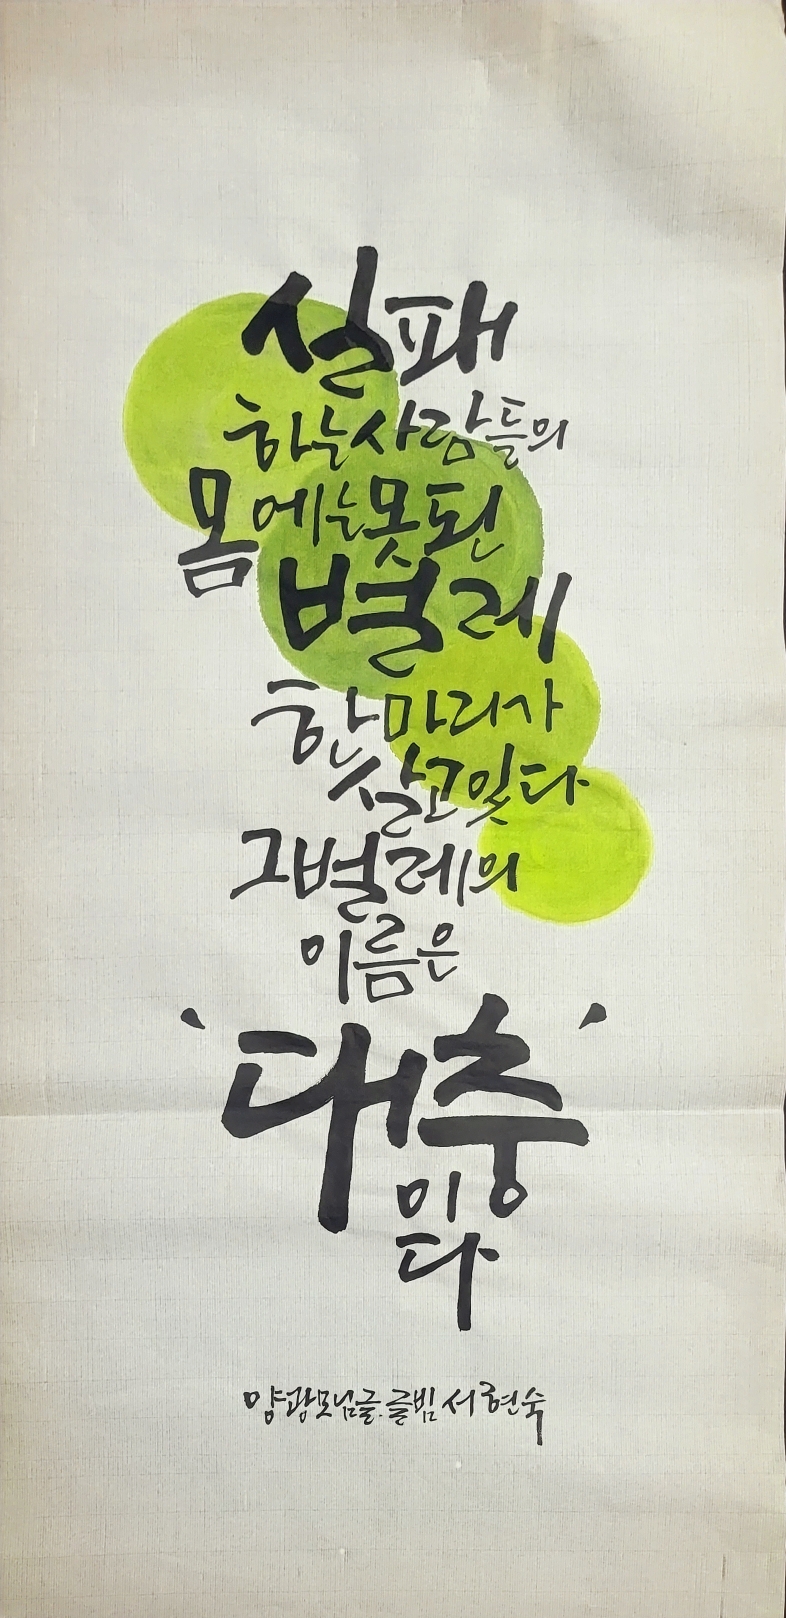 실패
하는 사람들의
몸에는 못된
벌레
한 마리가
살고 있다
그 벌레의
이름은
'대충'
이다
양광모님 글. 글빔 서현숙